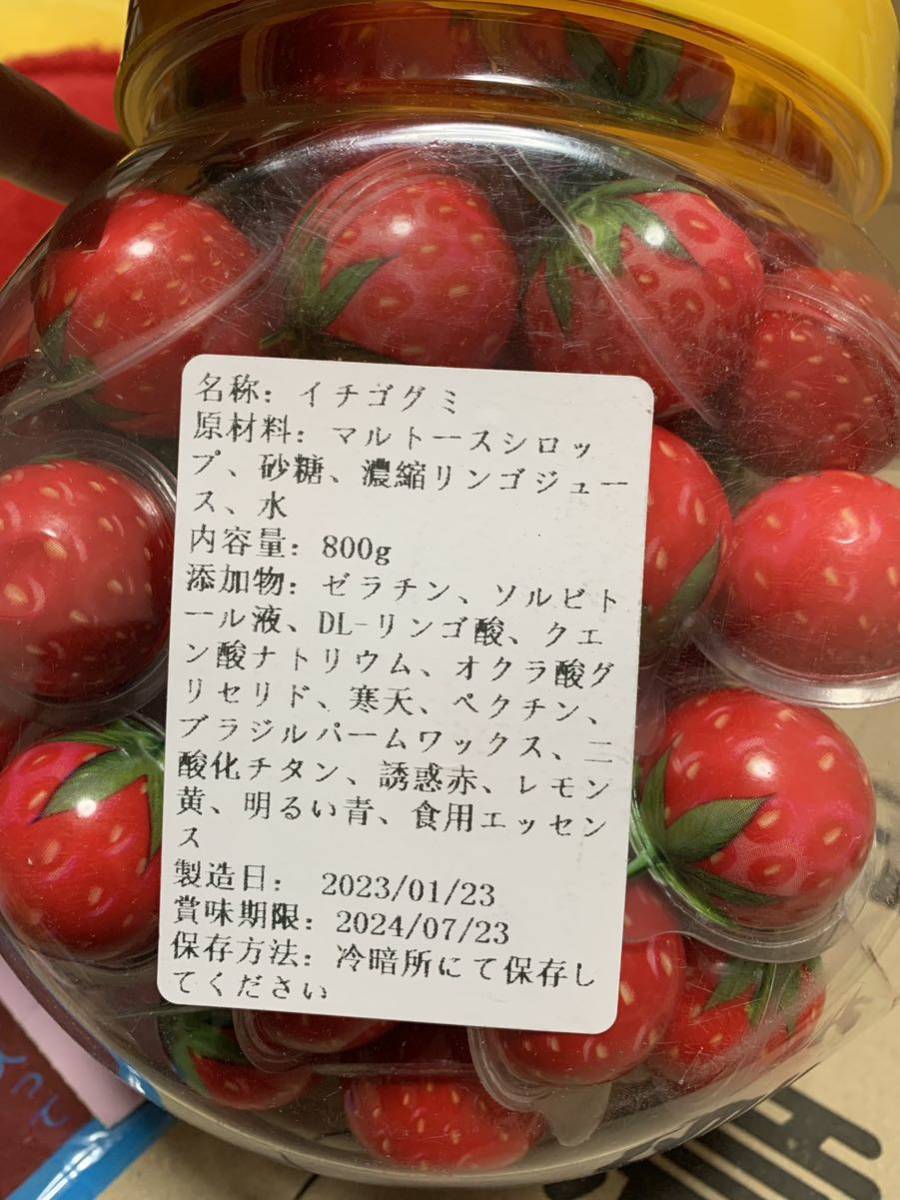 名称: イチゴグミ
原材料: マルトースシロッ
プ、砂糖、濃縮リンゴジュー
ス、水
内容量: 800g
添加物: ゼラチン、ソルビト
ール液、DL-リンゴ酸、クエ
ン酸ナトリウム、オクラ酸グ
リセリド、寒天、ペクチン、
ブラジルパームワックス、二
酸化チタン、誘惑赤、レモン
黄、明るい青、食用エッセン
ス
製造日: 2023/01/23
賞味期限: 2024/07/23
保存方法: 冷暗所にて保存し
てください